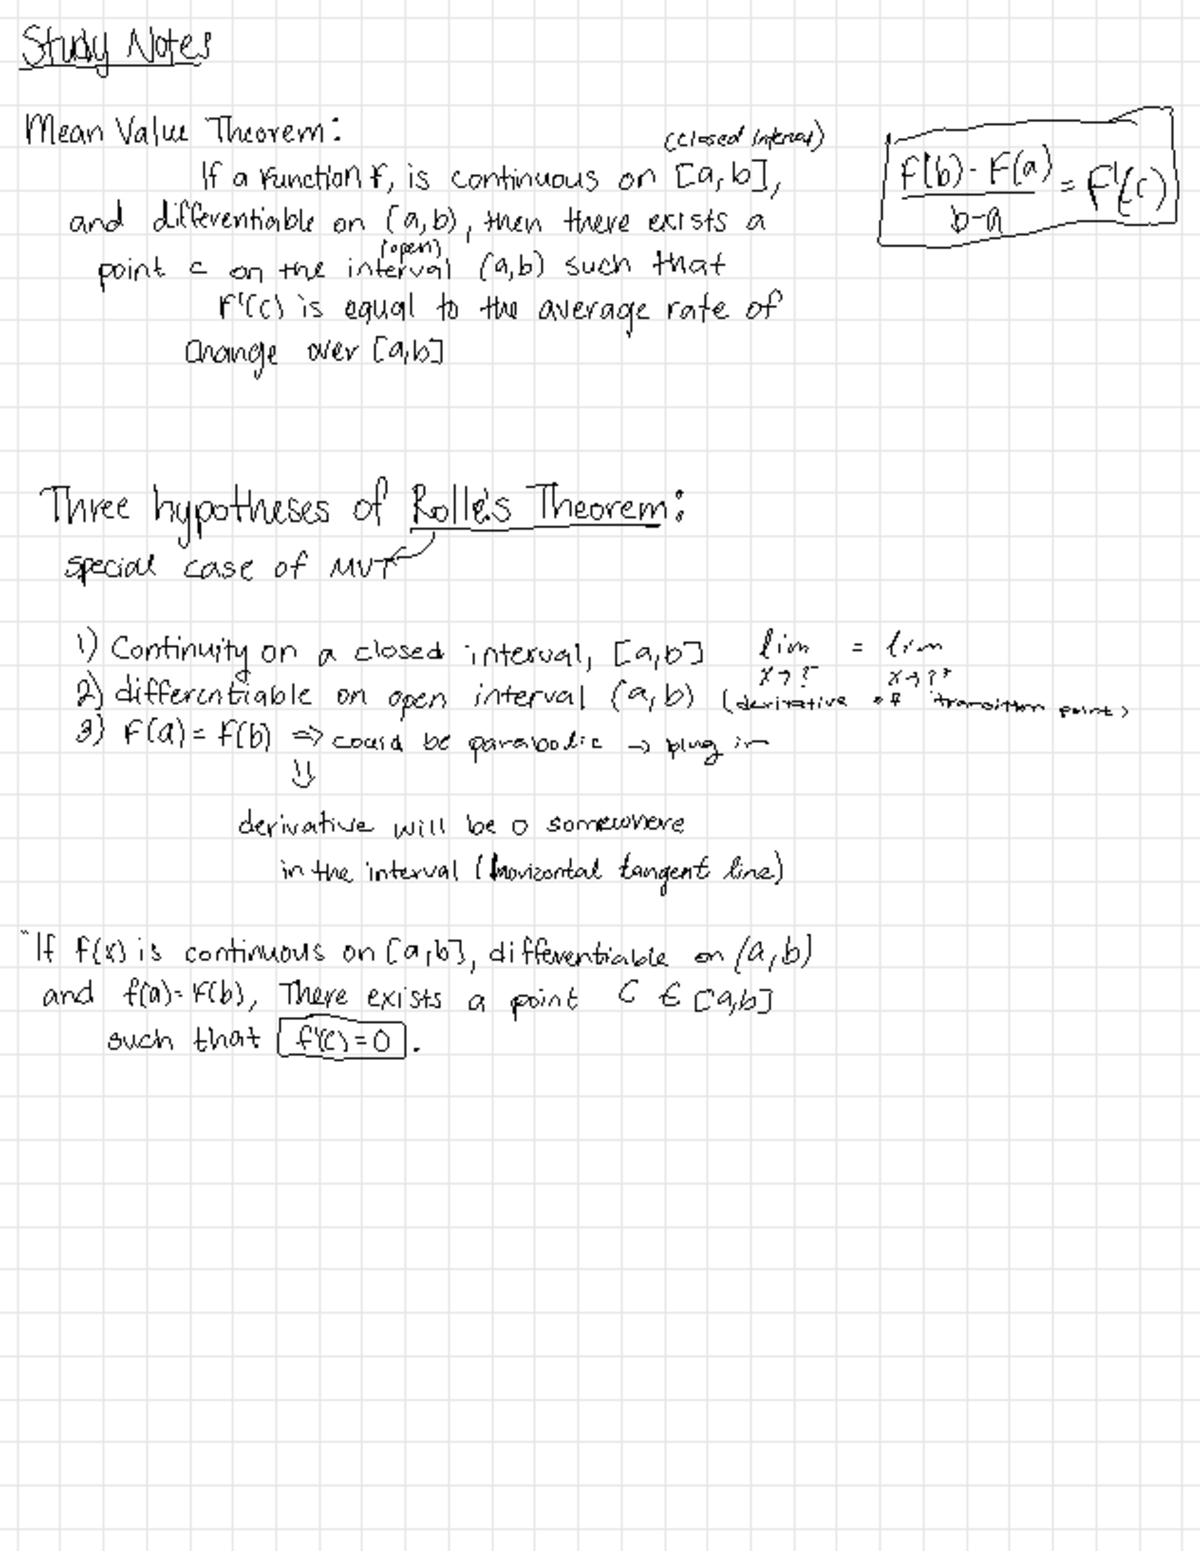 Study Notes
Mean Value Theorem:
(closed interval)
If a function f, is continuous on [a,b],
and differentiable on (a,b), then there exists a
(open)
point c on the interval (a,b) such that
F'(c) is equal to the average rate of
change over [a,b]
F(b) - F(a) = F'(c)
b-a
Three hypotheses of Rolle's Theorem:
special case of MVT
1) Continuity on a closed interval, [a,b] lim = lim
x→?⁻ x→?⁺
2) differentiable on open interval (a,b) (derivative of transition point)
3) F(a) = f(b) ⇒ could be parabolic → plug in
⇓
derivative will be 0 somewhere
in the interval (horizontal tangent line)
"If f(x) is continuous on [a,b], differentiable on (a,b)
and f(a) = F(b), There exists a point C ∈ [a,b]
such that f'(c) = 0.